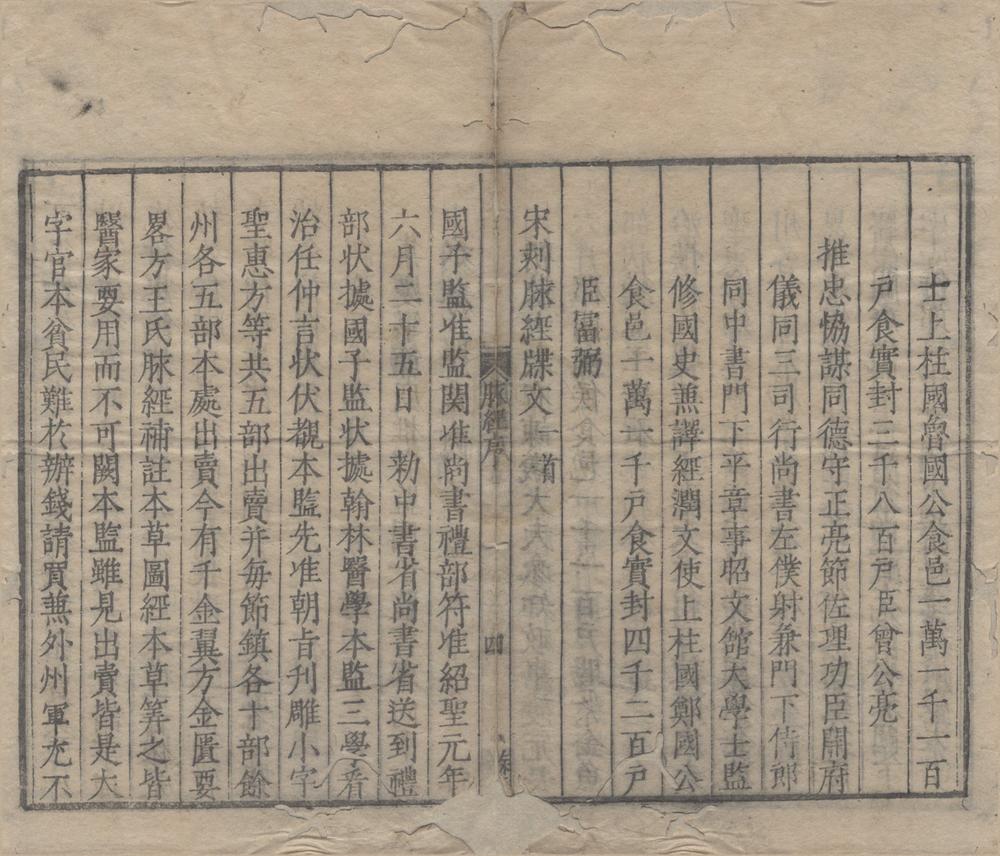 士上柱國魯國公食邑一萬一千一百
戶食實封三千八百戶臣曾公亮
推忠協謀同德守正亮節佐理功臣開府
儀同三司行尚書左僕射兼門下侍郎
同中書門下平章事昭文館大學士監
修國史兼譯經潤文使上柱國鄭國公
食邑一萬一千戶食實封四千二百戶
臣富弼
宋刻脉經牒文一首
脉經序
四
國子監准監関准尚書禮部符准紹聖元年
六月二十五日勑中書省尚書省送到禮
部狀據國子監狀據翰林醫學本監三學看
治任仲言狀伏覩本監先准朝旨刊雕小字
聖惠方等共五部出賣并每節鎮各十部餘
州各五部本處出賣今有千金翼方金匱要
畧方王氏脉經補註本草圖經本草等之皆
醫家要用而不可闕本監雖見出賣皆是大
字官本貧民難於辦錢請買兼外州軍尤不